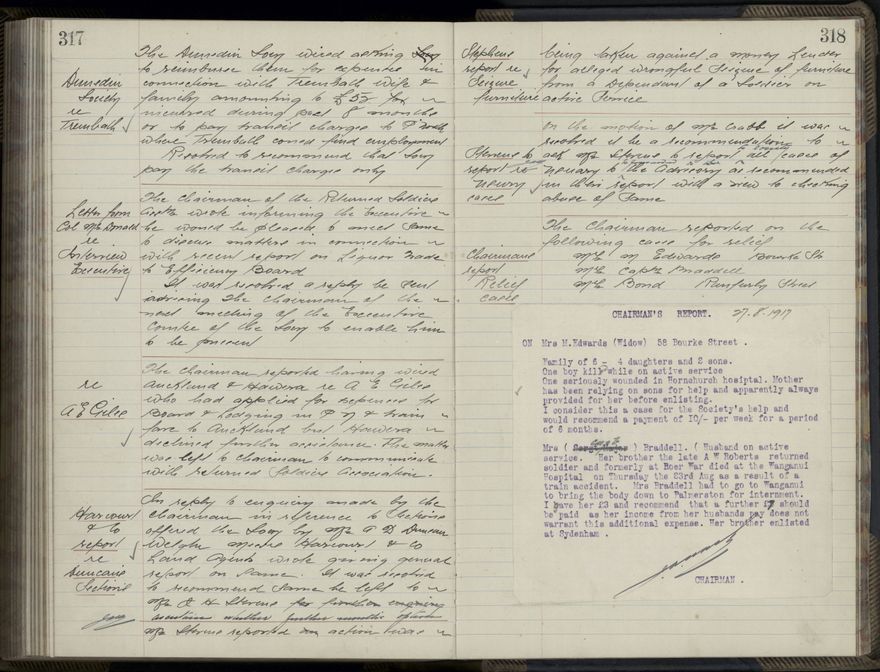 317
Dunedin
Society
re
Trembath
The Dunedin Socy wired asking
to reimburse them for expenses in
connection with Trembath wife &
family amounting to
incurred during past 8 months
or to pay transit charges to P North
where Trembath could find employment
Resolved to recommend that Socy
pay the transit charges only
Letter from
Col McDonald
re
Interview
Executive
The Chairman of the Returned Soldiers
Assn wrote informing the Executive
he would be pleased to meet same
to discuss matters in connection
with recent report on Liquor Trade
to Efficiency Board
It was resolved a reply be sent
advising the Chairman of the
next meeting of the Executive
Comtee of the Socy to enable him
to be present
re
A E Giles
The Chairman reported having wired
Auckland & Hawera re A E Giles
who had applied for expenses for
Board & Lodging in P N & train
fare to Auckland but Hawera
declined further assistance. The matter
was left to Chairman to communicate
with returned Soldiers Association.
Harcourt
& Co
report
re
Duncans
Sections
In reply to enquiry made by the
Chairman in reference to Sections
offered the Socy by Mr Duncan
Messrs Harcourt & Co
Land Agents wrote giving general
report on same. It was resolved
to recommend same be left to
Mr Stevens for further enquiry
ascertain whether further months option
Mr Stevens reported on action was
318
Stephens
report re
Seizure
furniture
being taken against a money Lender
for alleged wrongful Seizure of furniture
from a Dependant of a Soldier on
active Service
Stevens to
report re
Necessary
cases
On the motion of Mr Crabb it was
resolved it be a recommendation to
ask Mr Stevens to report all cases of
necessary to the Advisory as recommended
in their report with a view to checking
abuse of same
Chairmans
report
Relief
cases
The Chairman reported on the
following cases for relief
Mrs M Edwards Bourke St
Mrs Captn Braddell
Mrs Bond Ranfurly Street
CHAIRMAN'S REPORT. 27.8.1917
ON Mrs M.Edwards (Widow) 58 Bourke Street .
Family of 6 - 4 daughters and 2 sons.
One boy kill while on active service
One seriously wounded in Hornchurch hosiptal. Mother
has been relying on sons for help and apparently always
provided for her before enlisting.
I consider this a case for the Society's help and
would recommend a payment of IO/- per week for a period
of 6 months.
Mrs ( Capt ) Braddell. ( Husband on active
service. Her brother the late A W Roberts returned
soldier and formerly at Boer War died at the Wanganui
Hospital on Thursday the 23rd Aug as a result of a
train accident. Mrs Braddell had to go to Wanganui
to bring the body down to Palmerston for interment.
I gave her £3 and recommend that a further £7 should
be paid as her income from her husbands pay does not
warrant this additional expense. Her brother enlisted
at Sydenham .
CHAIRMAN .